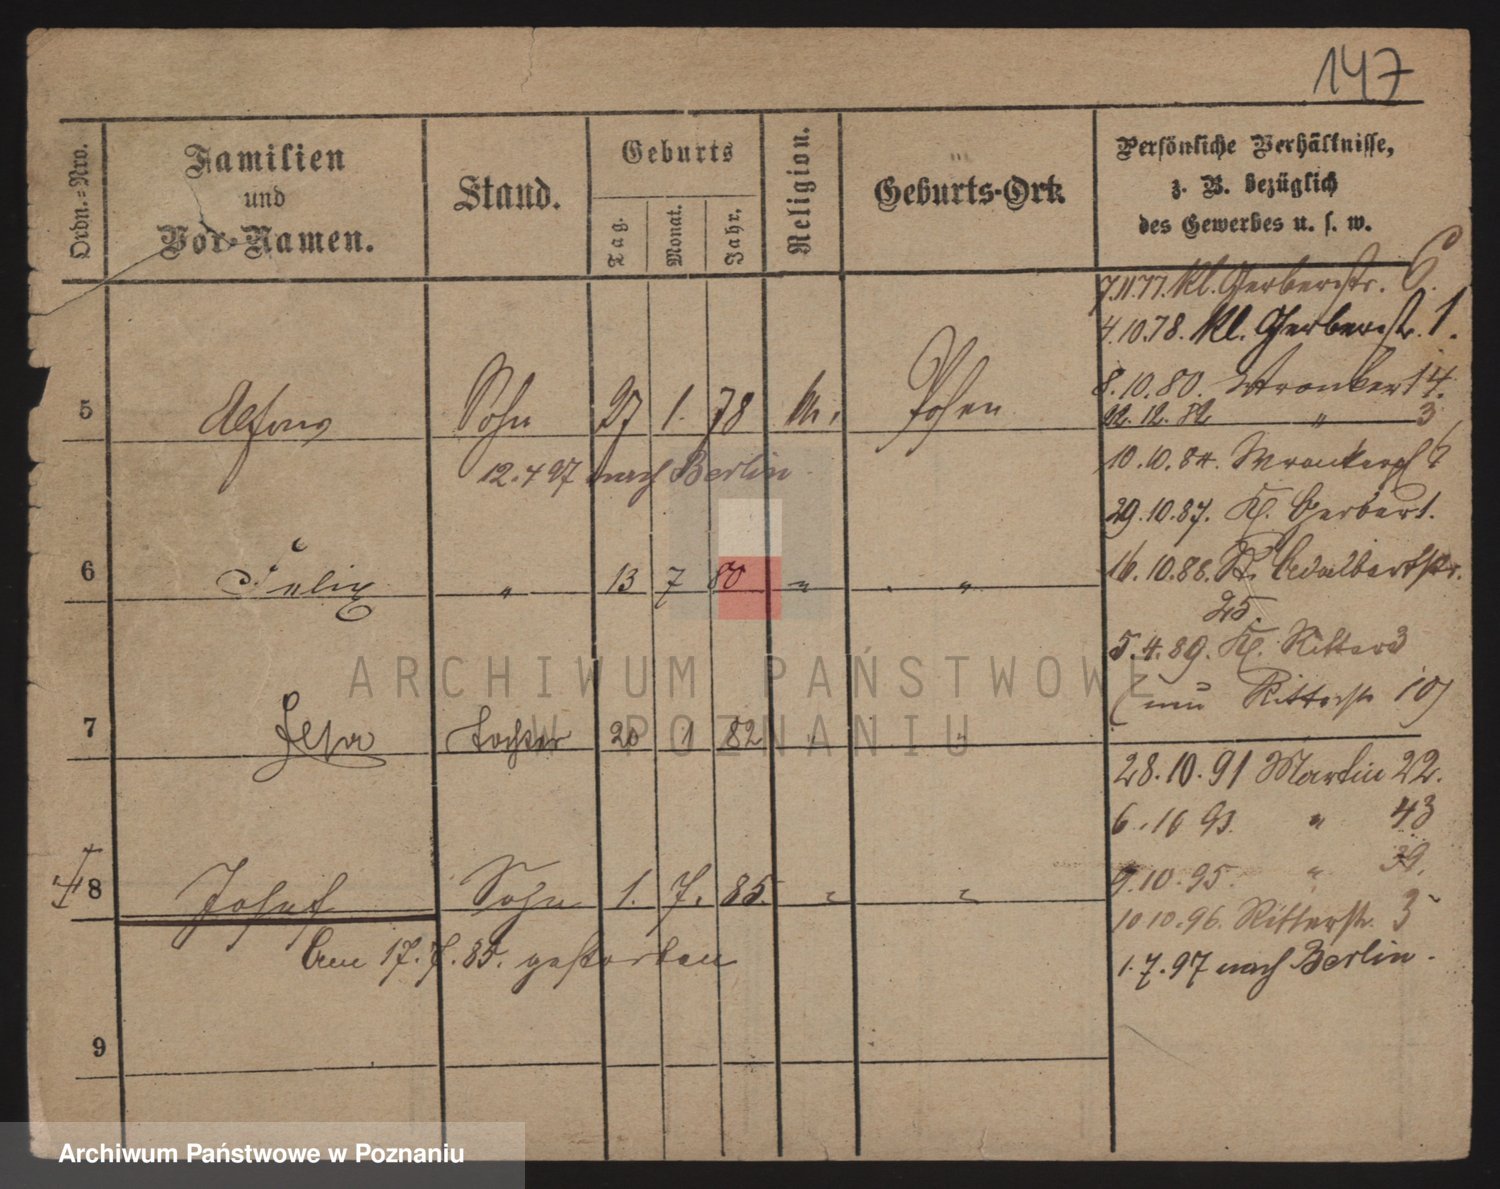 147
Ordn.=Nro.
Familien
und
Vor=Namen.
Stand.
Geburts
Tag.
Monat.
Jahr.
Religion.
Geburts-Ort.
Persönliche Verhältnisse,
z. B. bezüglich
des Gewerbes u. s. w.
7.11.77. Kl. Gerberstr. 6.
4.10.78. Kl. Gerberstr. 1.
8.10.80. Wronker 14.
5 Alfons Sohn 27 1. 78 M. Posen
22.12.82 " 3
12.4 97 nach Berlin
10.10.84. Wronkerpl 6
29.10.87. Kl. Gerber 1.
6 Felix " 13 7 80 " "
16.10.88. St. Adalbertstr.
25.
5.4.89. Kl. Ritter 3
(neu Ritterstr 10)
ARCHIWUM PAŃSTWOWE
W POZNANIU
7 Tochter 20 1 82 " "
28.10.91 Martin 22.
6.10 93. " 43
9.10.95. " 39.
8 Josef Sohn 1. 7. 85. " "
10 10.96. Ritterstr. 3
Am 17.7.85. gestorben
1.7.97 nach Berlin.
9
Archiwum Państwowe w Poznaniu